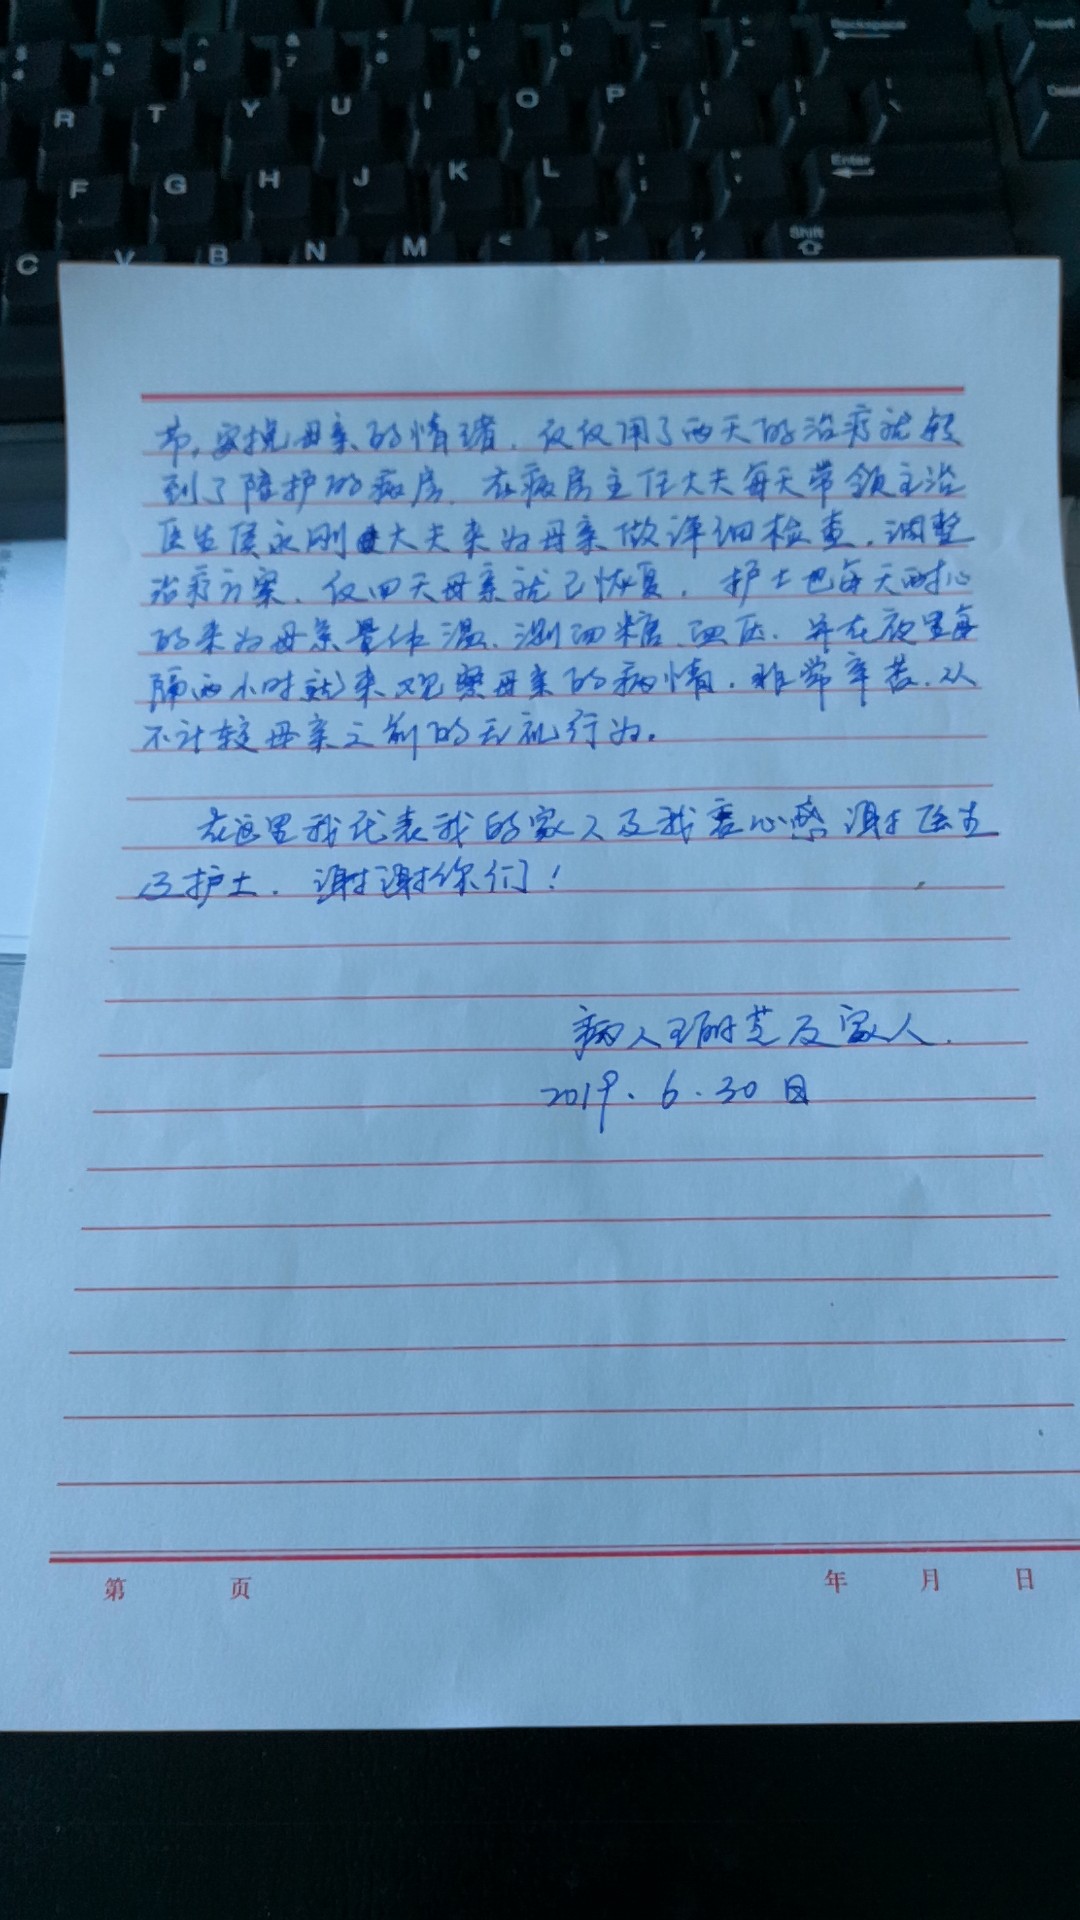 $ 4
% 5
^ 6
& 7
* 8
( 9
) 0
Backspace
Insert
R T Y U I O P { [ } ] | \
Delete
F G H J K L : ; " '
Enter
C V B N M < > ? /
Shift
节，安抚母亲的情绪，仅仅用了两天的治疗就转
到了陪护的病房，在病房主任大夫每天带领主治
医生侯永刚大夫来为母亲做详细检查，调整
治疗方案，仅四天母亲就已恢复，护士也每天耐心
的来为母亲量体温、测血糖、血压，并在夜里每
隔两小时就来观察母亲的病情，非常辛苦，从
不计较母亲之前的无礼行为。
在这里我代表我的家人及我衷心感谢医生
及护士，谢谢你们！
病人 芝及家人.
2019.6.30日
第 页 年 月 日